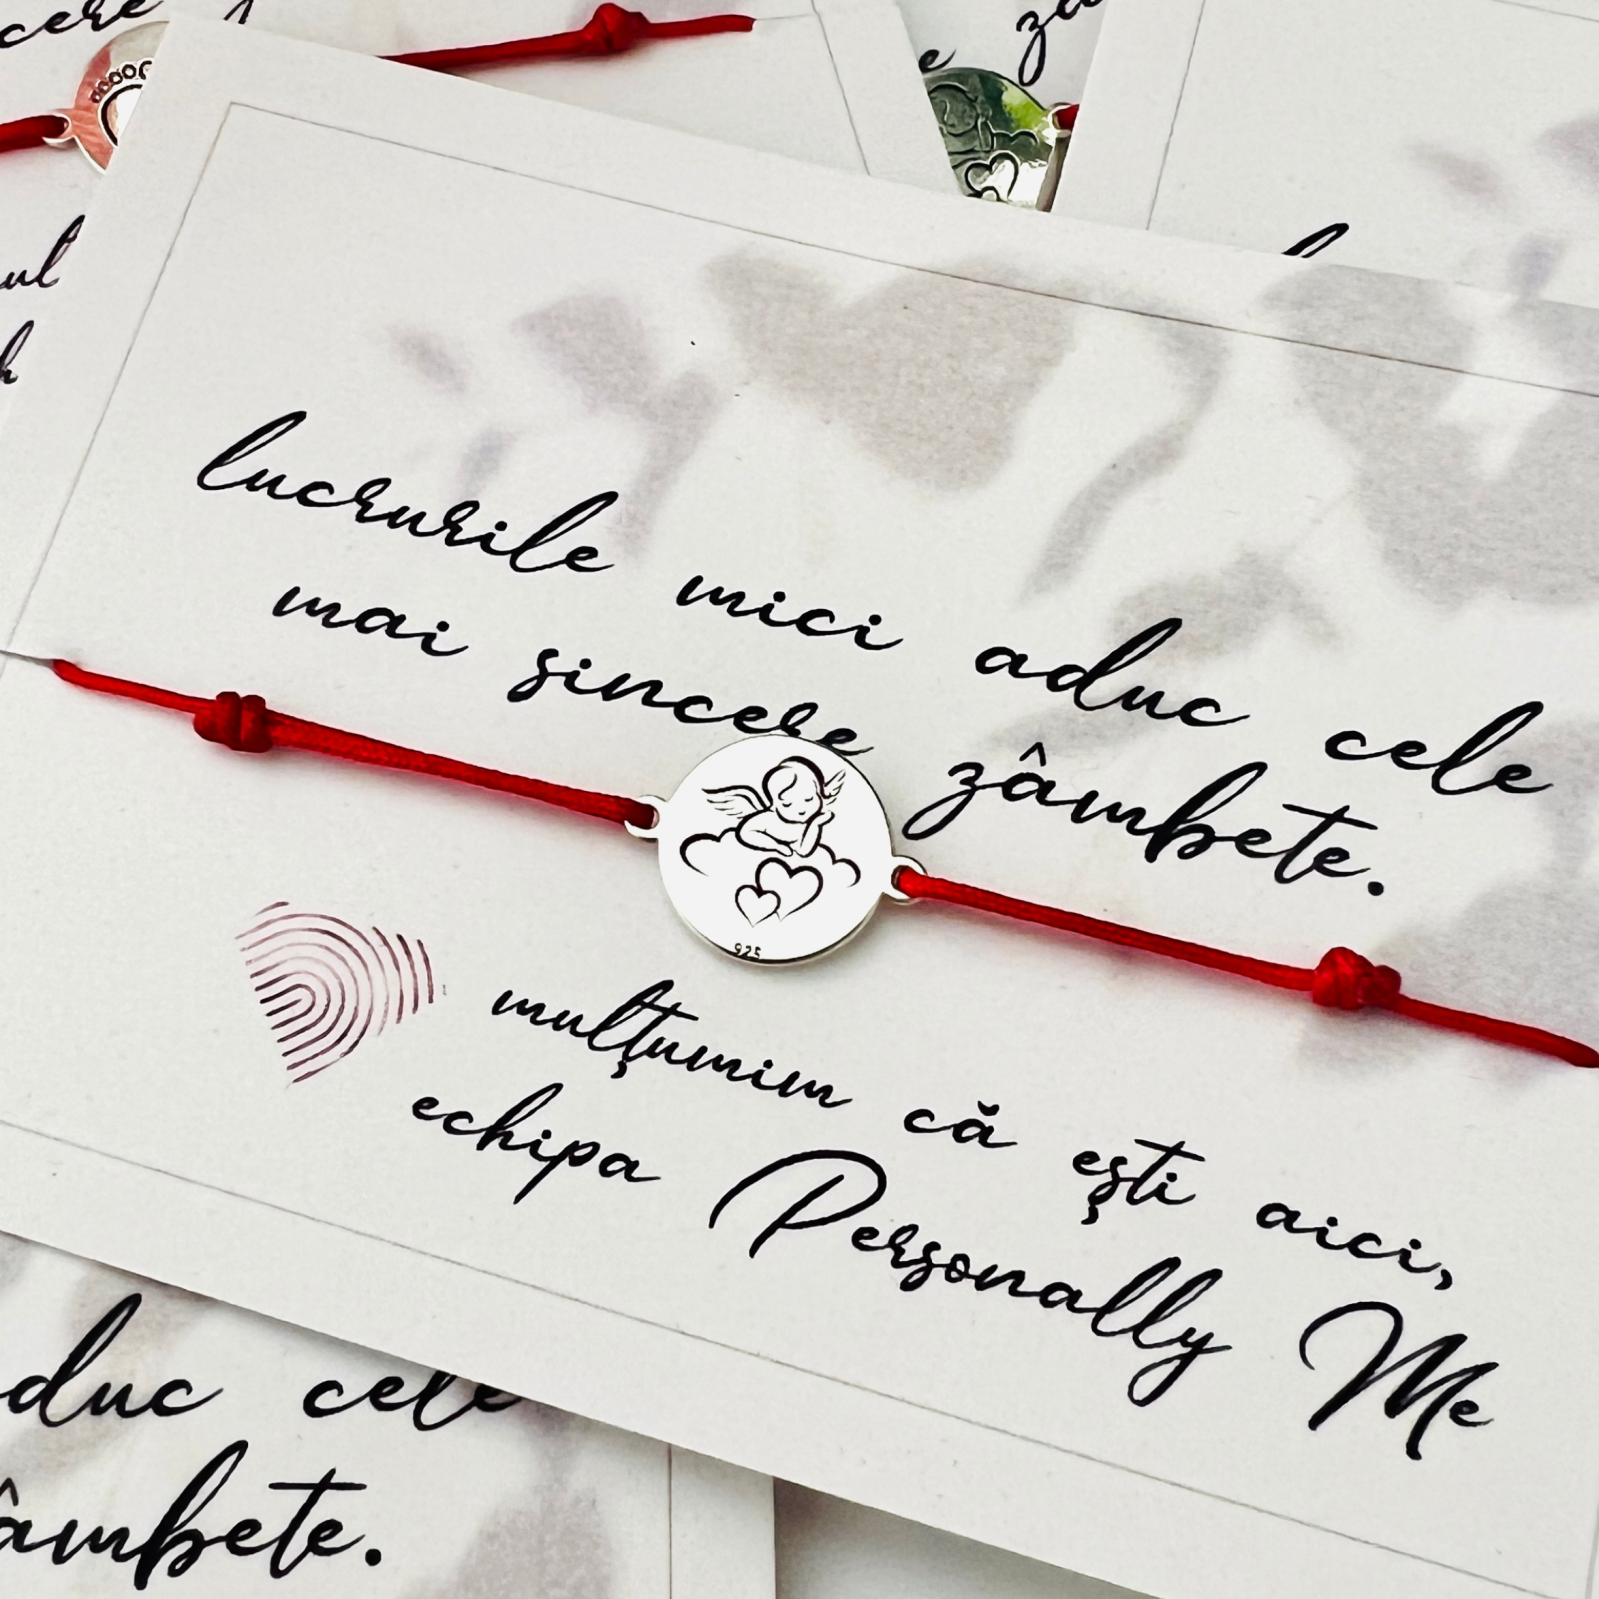 cere
ul
lucrurile mici aduc cele
mai sincere zâmbete.
925
mulțumim că ești aici,
echipa Personally Me
duc cele
âmbete.